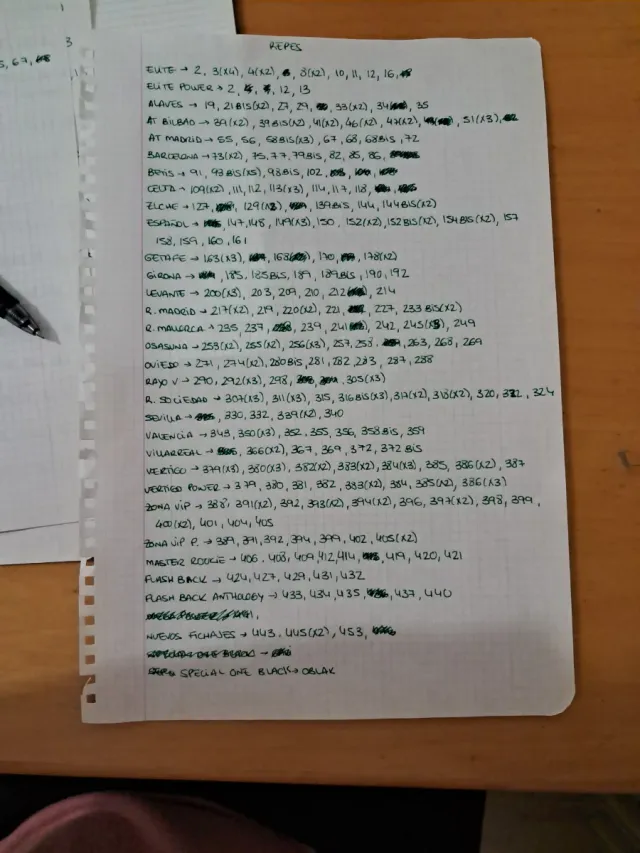 REPES
ELITE → 2, 3(X4), 4(X2), 8(X2), 10, 11, 12, 16,
ELITE POWER → 2, 12, 13
ALAVES → 19, 21BIS(X2), 27, 29, 33(X2), 34, 35
AT BILBAO → 39(X2), 39BIS(X2), 41(X2), 46(X2), 47(X2), 51(X3),
AT MADRID → 55, 56, 58BIS(X3), 67, 68, 68BIS, 72
BARCELONA → 73(X2), 75, 77, 79BIS, 82, 85, 86,
BETIS → 91, 93BIS(X5), 98BIS, 102,
CELTA → 109(X2), 111, 112, 113(X3), 114, 117, 118
ELCHE → 127, 129(X2), 139BIS, 144, 144BIS(X2)
ESPAÑOL → 147, 148, 149(X3), 150, 152(X2), 152BIS(X2), 154BIS(X2), 157
158, 159, 160, 161
GETAFE → 163(X3), 168, 170, 178(X2)
GIRONA → 185, 185BIS, 189, 189BIS, 190, 192
LEVANTE → 200(X3), 203, 209, 210, 212, 214
R. MADRID → 217(X2), 219, 220(X2), 221, 227, 233BIS(X2)
R. MALLORCA → 235, 237, 239, 241, 242, 245, 249
OSASUNA → 253(X2), 255(X2), 256(X3), 257, 258, 263, 268, 269
OVIEDO → 271, 274(X2), 280BIS, 281, 282, 283, 287, 288
RAYO V → 290, 292(X3), 298, 305(X3)
R. SOCIEDAD → 307(X3), 311(X3), 315, 316BIS(X3), 317(X2), 318(X2), 320, 322, 324
SEVILLA → 330, 332, 339(X2), 340
VALENCIA → 343, 350(X3), 352, 355, 356, 358BIS, 359
VILLARREAL → 366(X2), 367, 369, 372, 372BIS
VERTIGO → 379(X3), 380(X3), 382(X2), 383(X2), 384(X3), 385, 386(X2), 387
VERTIGO POWER → 379, 380, 381, 382, 383(X2), 384, 385(X2), 386(X3)
ZONA VIP → 388, 391(X2), 392, 393(X2), 394(X2), 396, 397(X2), 398, 399,
400(X2), 401, 404, 405
ZONA VIP P. → 389, 391, 392, 394, 399, 402, 405(X2)
MASTER ROOKIE → 406, 408, 409, 412, 414, 419, 420, 421
FLASH BACK → 424, 427, 429, 431, 432
FLASH BACK ANTHOLOGY → 433, 434, 435, 437, 440
NUEVOS FICHAJES → 443, 445(X2), 453,
SPECIAL ONE BLACK → OBLAK